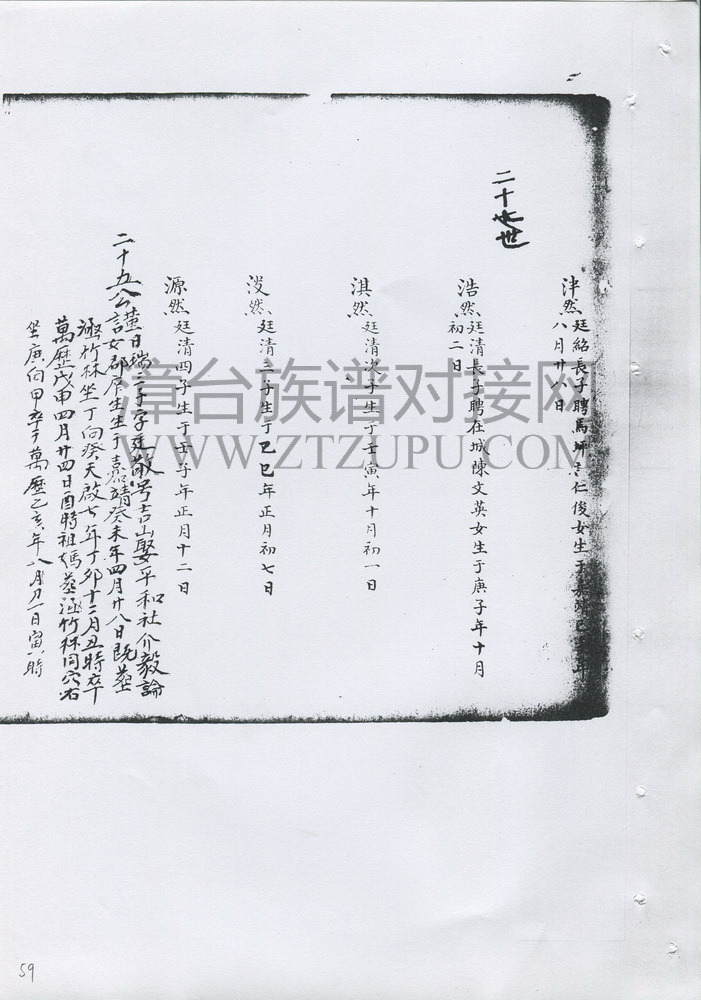 二十世
津然 廷紹長子聘馬坪 仁俊女生于 年
八月廿八日
浩然 廷清長子聘在城陳文英女生于庚子年十月
初二日
淇然 廷清次子生于壬寅年十月初一日
浚然 廷清三子生于己巳年正月初七日
源然 廷清四子生于壬子年正月十二日
二十五公諱日瑞 子字廷敬号吉山娶平和社介毅論
公諱女郡庠生生于嘉靖癸未年四月廿八日既 墓
涵竹林坐丁向癸天啟七年丁卯十二月丑時卒
萬歷戊申四月廿四日酉時祖媽墓涵竹林同穴
坐庚向甲卒于萬歷乙亥年八月初一日寅時
漳台族谱对接网
WWW.ZTZUPU.COM
59